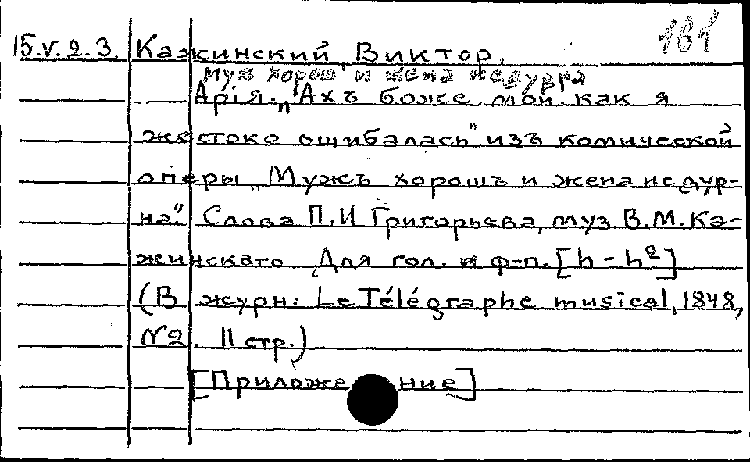 15.V.2.3. Кажинский, Виктор. 181
Муж хорош и жена недурна
Арія. „Ахъ боже мой как я
жестоко ошибалась" изъ комической
оперы „Мужъ хорошъ и жена недур-
на" Слова П.И Григорьева, муз В.М. Ка-
жинскаго Для гол. и ф-п. [h - h²]
(В журн: Le Télégraphe musical, 1848,
№2. 11 стр.)
[Приложение]